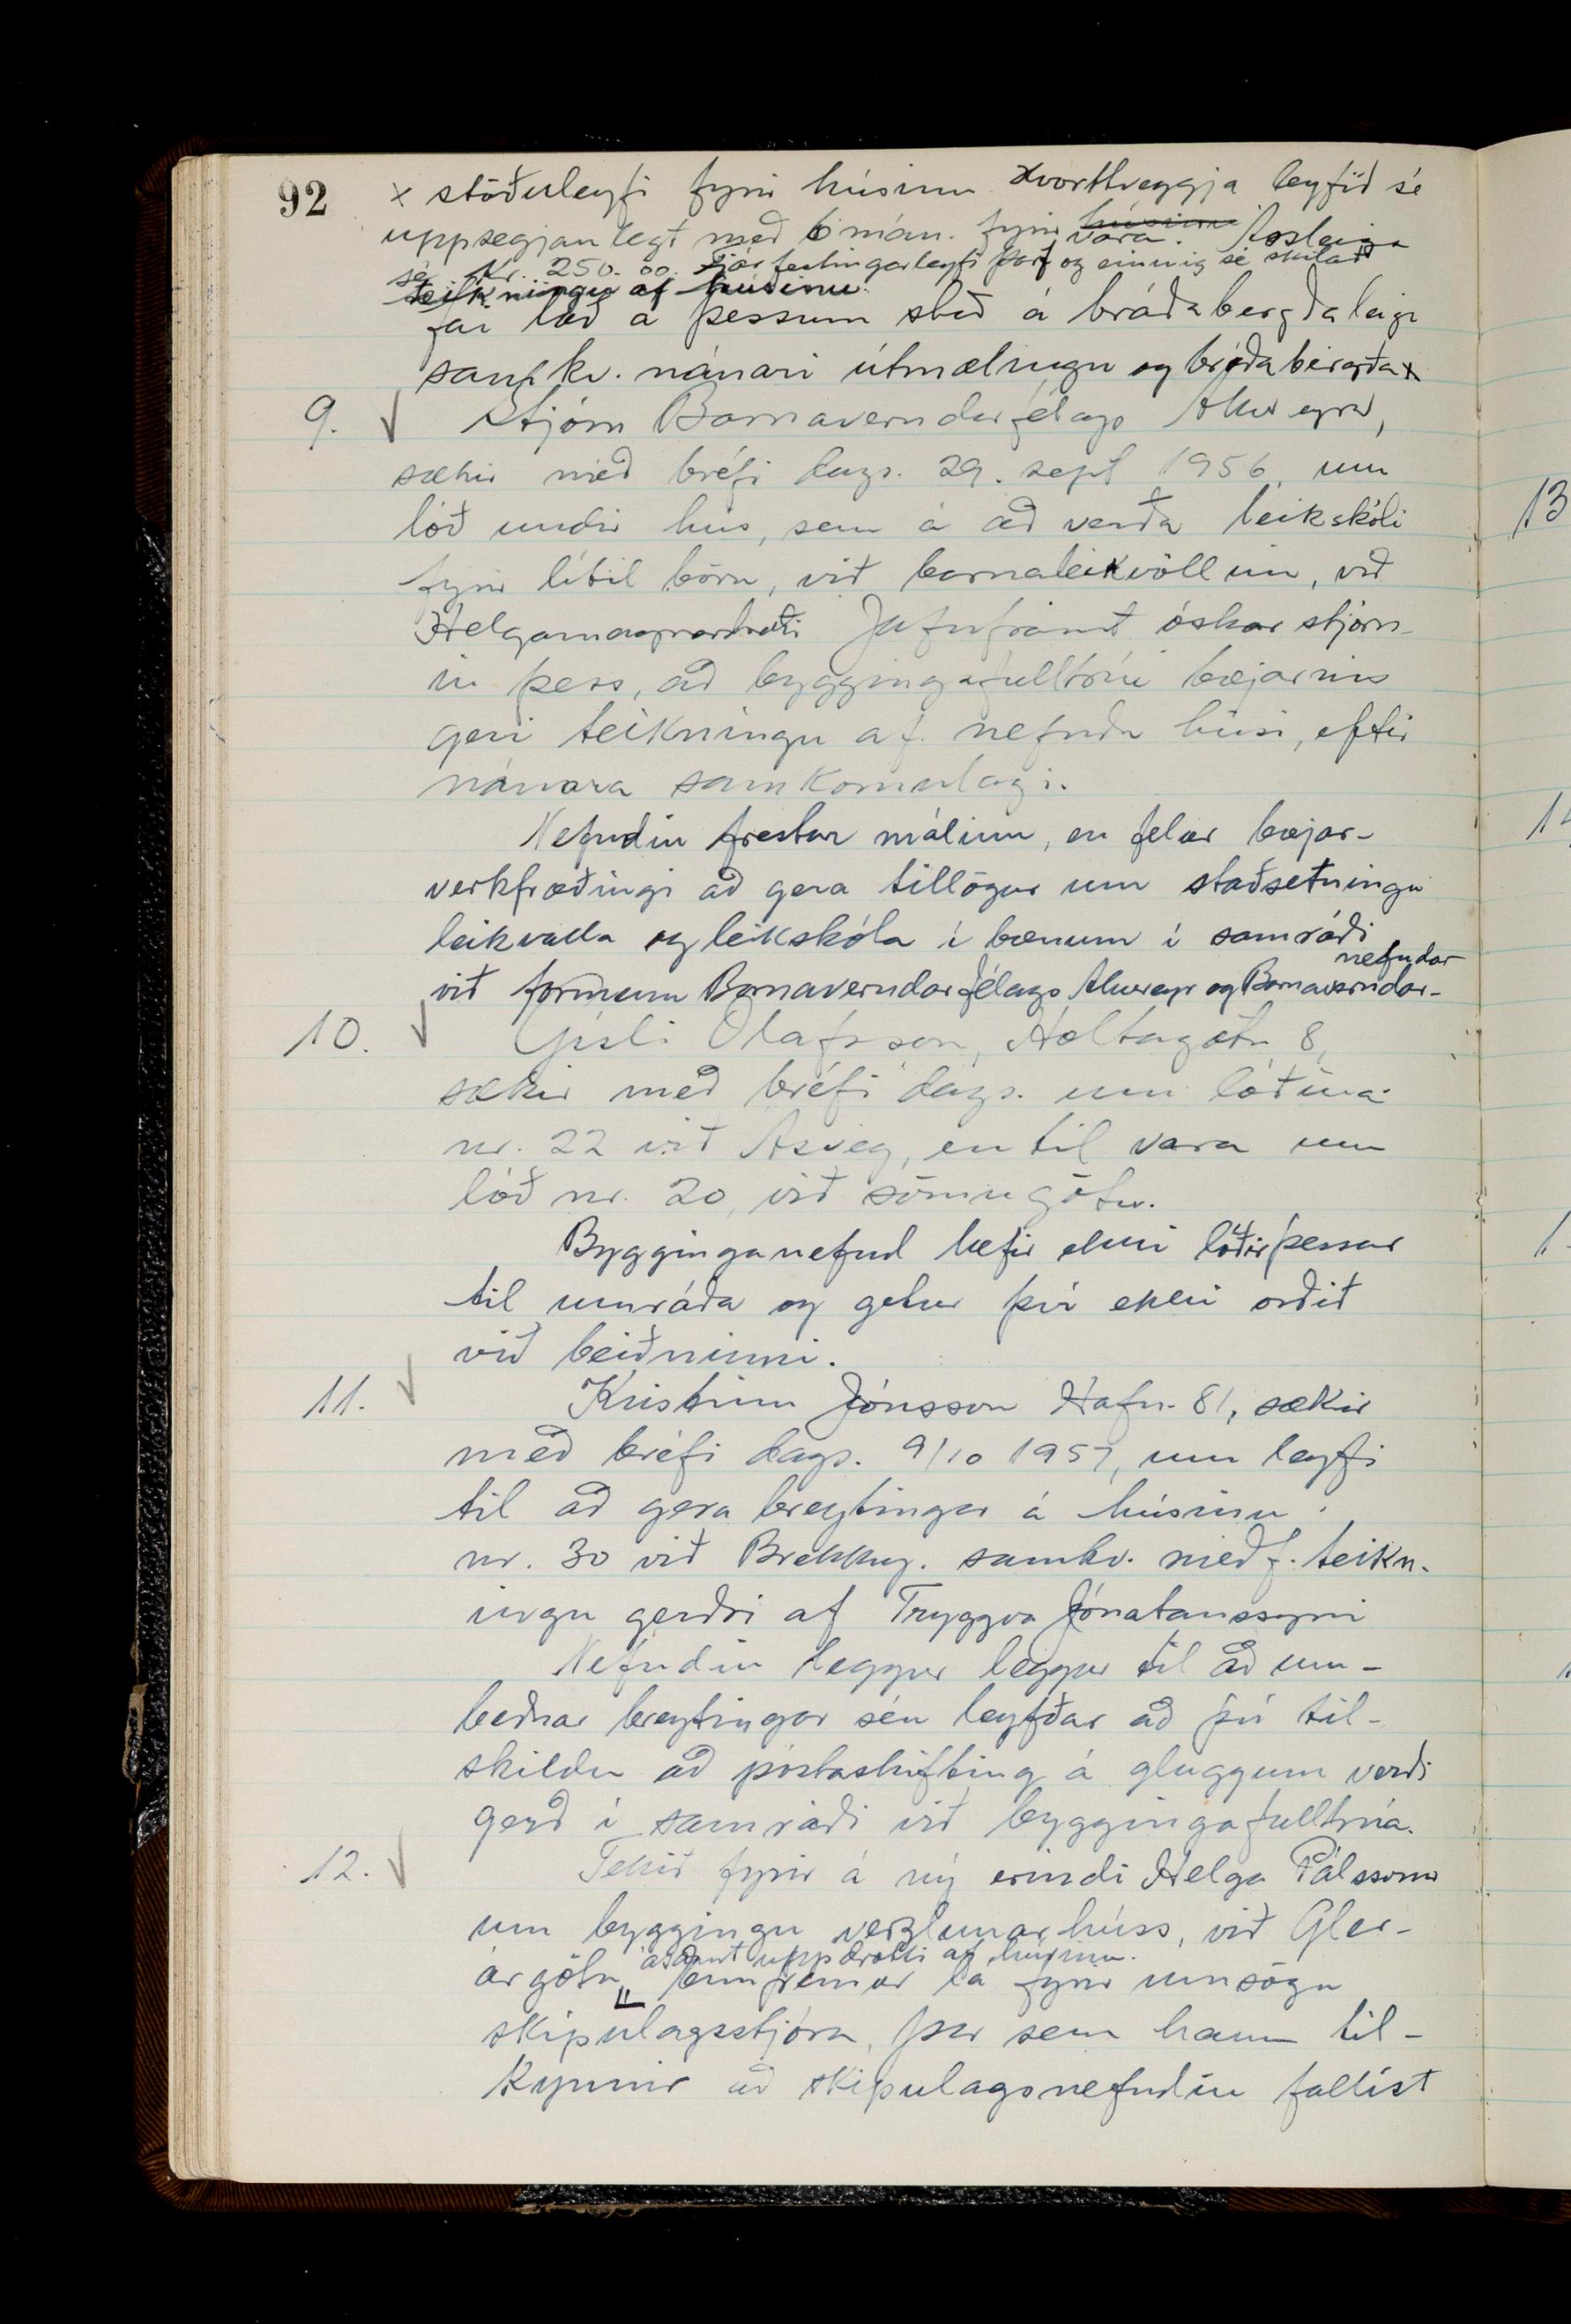 92
x stöðuleyfi fyrir húsinu hvorttveggja leyfið sé
uppsegjanlegt með 6 mán. fyrir húsinu vara. Ársleiga
sé kr. 250.00. Fjárfestingarleyfi þarf og einnig sé skilað
teikningu af húsinu
fái lóð á þessum stað á bráðabirgðaleigu
samkv. nánari útmælingu og bráðabirgða x
9. Stjórn Barnaverndarfélags Akureyrar,
sækir með bréfi dags. 29. sept 1956, um
lóð undir hús, sem á að verða leikskóli
fyrir lítil börn, við barnaleikvöllinn, við
Helgamagrastræti Jafnframt óskar stjórn-
in þess, að byggingafulltrúi bæjarins
geri teikningu af nefndu húsi, eftir
nánara samkomulagi.
Nefndin frestar málinu, en felur bæjar-
verkfræðingi að gera tillögur um staðsetningu
leikvalla og leikskóla í bænum í samráði
við formenn Barnaverndarfélags Akureyr og Barnaverndar-
nefndar
10. Gísli Ólafsson, Holtagötu 8,
sækir með bréfi dags. um lóðina
nr. 22 við Ásveg, en til vara um
lóð nr. 20, við sömu götu.
Bygginganefnd hefir ekki lóðir þessar
til umráða og getur því ekki orðið
við beiðninni.
11. Kristinn Jónsson Hafn. 81, sækir
með bréfi dags. 9/10 1957, um leyfi
til að gera breytingar á húsinu
nr. 30 við Brekkug. samkv. meðf. teikn-
ingu gerðri af Tryggva Jónatanssyni
Nefndin leggur leggur til að um-
beðnar breytingar séu leyfðar að því til-
skildu að póstaskifting á gluggum verði
gerð í samráði við byggingafulltrúa.
12. Tekið fyrir á ný erindi Helga Pálssonar
um byggingu verzlunarhúss, við Gler-
ásamt uppdrætti af húsinu.
árgötu, Ennfremur lá fyrir umsögn
skipulagsstjóra, þar sem hann til-
kynnir að skipulagsnefndin fallist
13